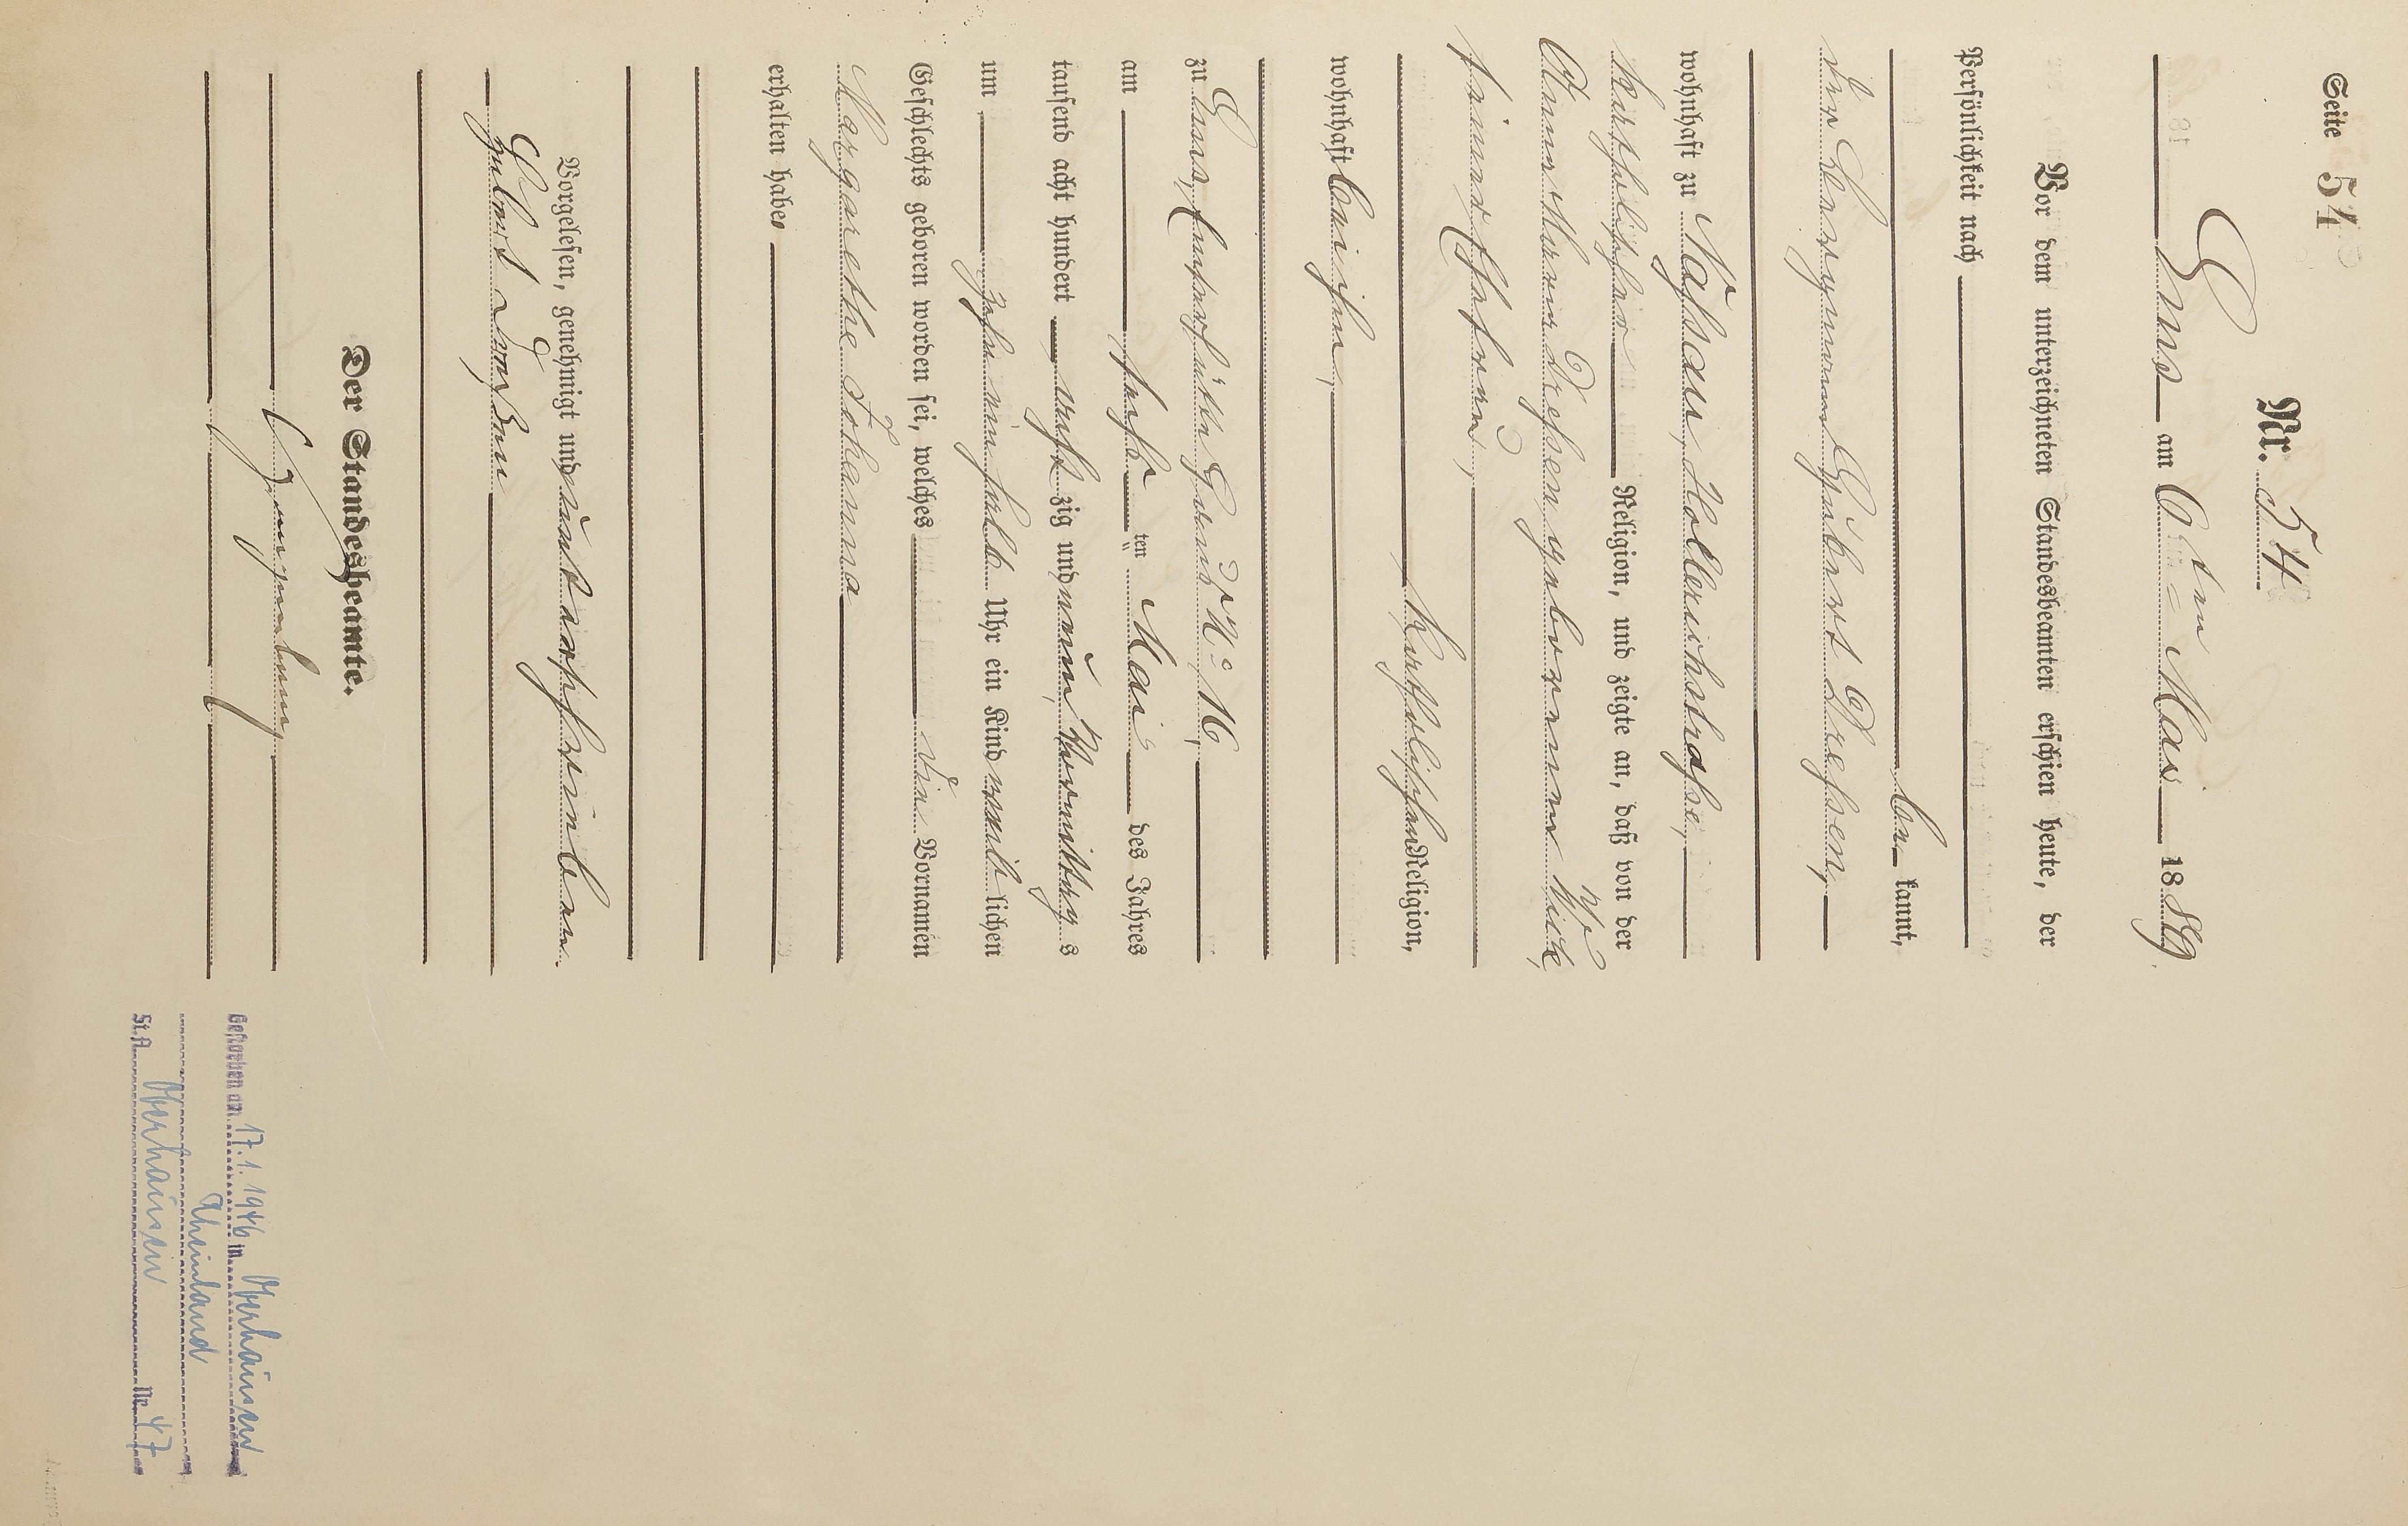 Seite 54
Nr. 54
Ems am 6ten Mai 1889.
Vor dem unterzeichneten Standesbeamten erschien heute, der
Persönlichkeit nach
be kannt,
der Bergmann Hubert Dreßen,
wohnhaft zu Nassau, Hollerichstraße,
katholischer Religion, und zeigte an, daß von der
Anna Maria Dreßen geborenen
seiner Ehefrau,
katholischer Religion,
wohnhaft bei ihm,
zu Ems, No 16,
am fünften Mai des Jahres
tausend acht hundert acht zig und neun, Vormittags
um zehn ein halb Uhr ein Kind weib lichen
Geschlechts geboren worden sei, welches die Vornamen
Margarethe Johanna
erhalten habe.
Vorgelesen, genehmigt und unterschrieben.
Hubert Dreßen
Der Standesbeamte.
Gestorben am 17.1.1946 in Oberhausen
Rheinland
St.A. Oberhausen Nr. 47